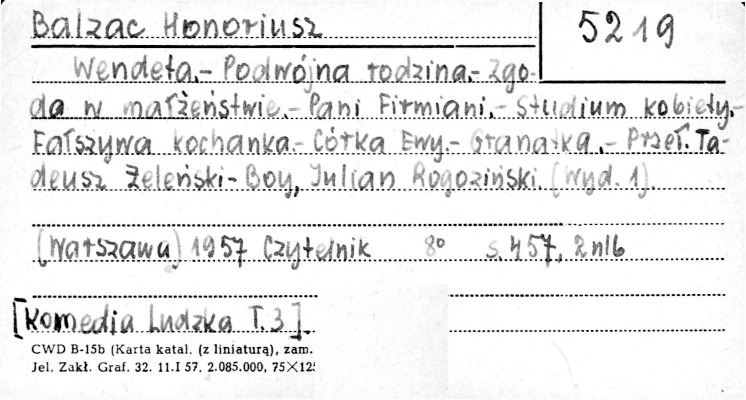 Balzac Honoriusz
5219
Wendeta.- Podwójna rodzina.- Zgo-
da w małżeństwie.- Pani Firmiani.- Studium kobiety.-
Fałszywa kochanka.- Córka Ewy.- Granatka.- Przeł. Ta-
deusz Żeleński-Boy, Julian Rogoziński. (Wyd. 1).
(Warszawa) 1957 Czytelnik 8° s. 457, 2 nlb
[Komedia Ludzka T. 3].
CWD B-15b (Karta katal. (z liniaturą), zam.
Jel. Zakł. Graf. 32. 11.I 57. 2.085.000, 75×125